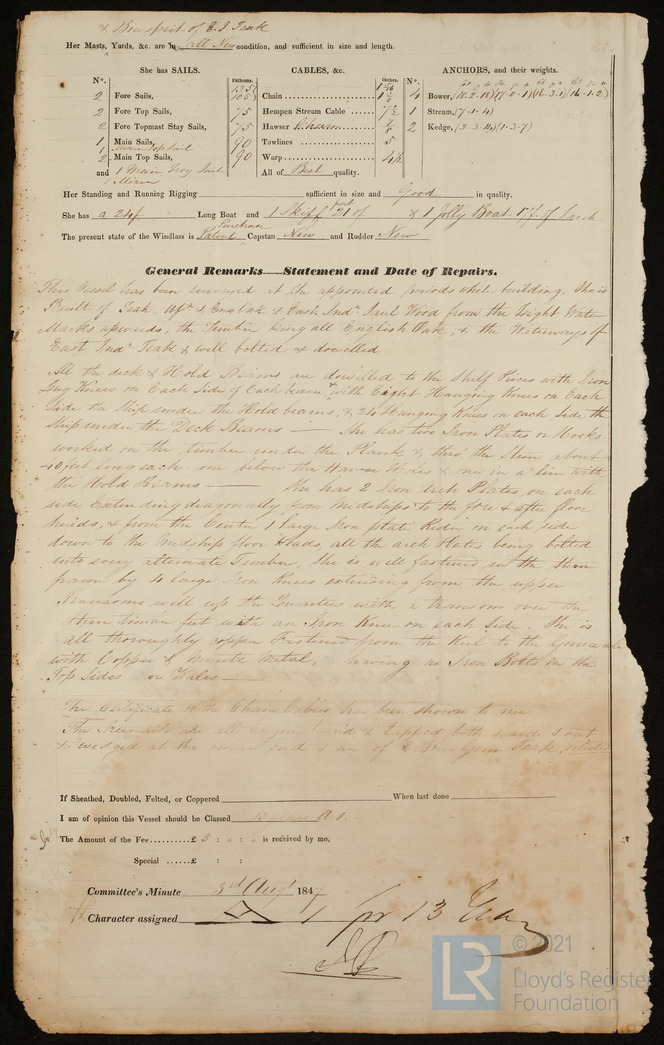 & Bowsprit of E. I. Teak
Her Masts, Yards, &c. are in all New condition, and sufficient in size and length.
She has SAILS. CABLES, &c. ANCHORS, and their weights.
N°. Fathoms. Inches. N°.
2 Fore Sails, Chain 4 Bower,
2 Fore Top Sails, 75 Hempen Stream Cable 7½ 1 Stream, (7-1-4)
2 Fore Topmast Stay Sails, 75 Hawser Chain 2 Kedge, (3-3-14)(1-3-7)
1 Main Sails, 90 Towlines 5
1 Main Top Sail
2 Main Top Sails, 90 Warp 4½
and 1 Main Troy Sail All of Best quality.
1 Mizen
Her Standing and Running Rigging sufficient in size and Good in quality.
She has a 24 f Long Boat and 1 Skiff 21 of & 1 Jolly Boat 17 f. of Larch
The present state of the Windlass is Patent Purchase Capstan New and Rudder New
General Remarks—Statement and Date of Repairs.
This Vessel has been surveyed at the appointed periods whil building. She is
Built of Teak, Afrn & Eng Oak & East Inda Saul Wood from the Light Water
Marks upwards, the Timber being all English Oak, & the Waterways of
East Inda Teak & well bolted & dowelled
All the deck & Hold Beams are dowelled to the Shelf Pieces with Iron
Lug Knees on Each Side of Each beam, with Eight Hanging Knees on Each
Side the Ship under the Hold beams, & 24 Hanging Knees on each Side the
Ship under the Deck Beams — She has two Iron Plates or Hooks
worked on the timber under the Plank & thro' the Stem about
40 feet long each one below the Hawse Holes & one in a line with
the Hold Beams — She has 2 Iron Plates on each
side Extending diagonally from midships to the fore & after floor
heads, & from the Centre 1 large Iron plate Rider on each side
down to the midship floor heads, all the arch Plates being bolted
into every alternate Timber, She is well fastened in the Stern
frame by 4 large Iron Knees extending from the upper
Transoms well up the Quarters with a transom over the
Stern timber feet with an Iron Knee on each Side. She is
all thoroughly copper Fastened from the Keel to the Gunwale
with Copper & Muntz Metal, having no Iron Bolts in the
Top Sides or Wales —
The Certificate of the Chain Cables has been shown to me
The Treenails are all Engine turn'd & tapped both inside & out
& wedged at the inner end & are of
If Sheathed, Doubled, Felted, or Coppered When last done
I am of opinion this Vessel should be Classed A 1.
The Amount of the Fee £ 5 : : is received by me,
Special £ : :
Committee's Minute 3rd Augt 1847
Character assigned A 1 for 13 Years
© 2021
LR
Lloyd's Register
Foundation